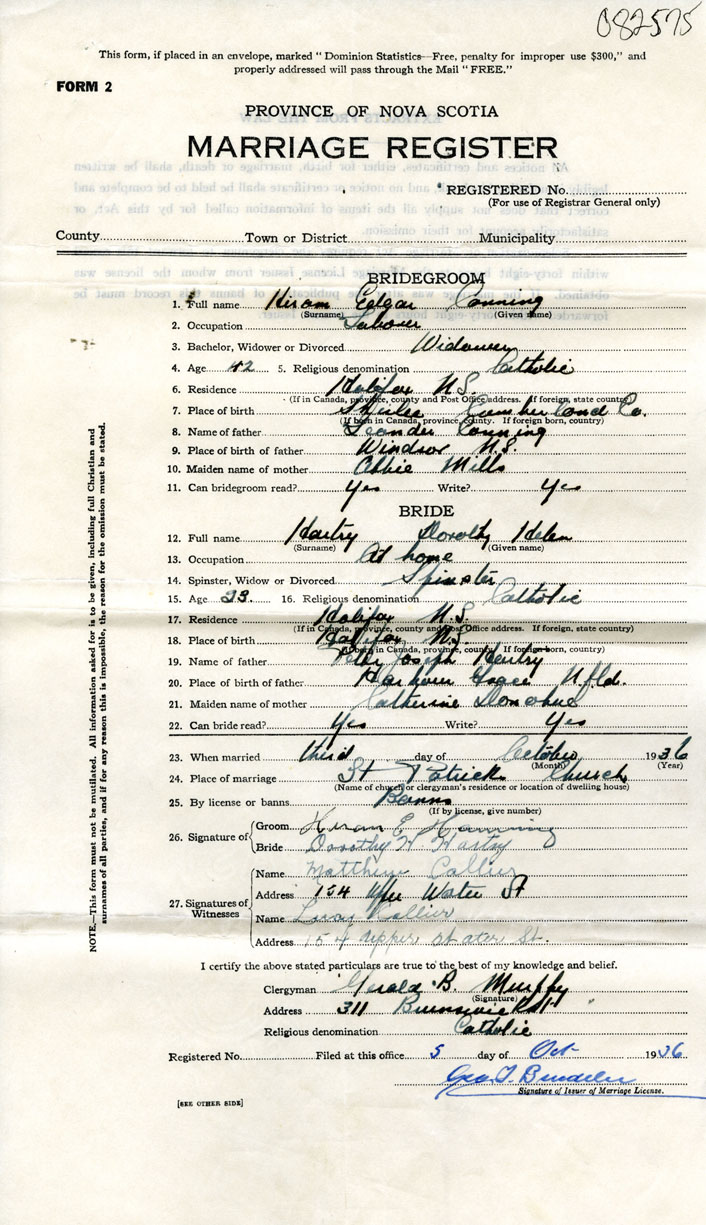 082575
This form, if placed in an envelope, marked "Dominion Statistics—Free, penalty for improper use $300," and
properly addressed will pass through the Mail "FREE."
FORM 2
PROVINCE OF NOVA SCOTIA
MARRIAGE REGISTER
REGISTERED No.
(For use of Registrar General only)
County Town or District Municipality
BRIDEGROOM
1. Full name Hiram Edgar Canning
(Surname) (Given name)
2. Occupation Labourer
3. Bachelor, Widower or Divorced Widower
4. Age 42 5. Religious denomination Catholic
6. Residence Halifax N.S.
(If in Canada, province, county and Post Office address. If foreign, state country)
7. Place of birth Cumberland Co.
(If born in Canada, province, county. If foreign born, country)
8. Name of father Leander Canning
9. Place of birth of father Windsor N.S.
10. Maiden name of mother Abbie Mills
11. Can bridegroom read? Yes Write? Yes
BRIDE
12. Full name Hartry Dorothy Helen
(Surname) (Given name)
13. Occupation At home
14. Spinster, Widow or Divorced Spinster
15. Age 23. 16. Religious denomination Catholic
17. Residence Halifax N.S.
(If in Canada, province, county and Post Office address. If foreign, state country)
18. Place of birth Halifax N.S.
(If born in Canada, province, county. If foreign born, country)
19. Name of father Peter Joseph Hartry
20. Place of birth of father Harbour Grace Nfld.
21. Maiden name of mother Catherine Donohue
22. Can bride read? Yes Write? Yes
23. When married third day of October 1936
(Month) (Year)
24. Place of marriage St Patrick Church
(Name of church or clergyman's residence or location of dwelling house)
25. By license or banns Banns
(If by license, give number)
26. Signature of Groom Hiram E
Bride Dorothy H Hartry
27. Signatures of Witnesses
Name Matthew Collier
Address 154 Upper Water St
Name Collier
Address 154 Upper Water St.
I certify the above stated particulars are true to the best of my knowledge and belief.
Clergyman Gerald B. Murphy
(Signature)
Address 311 Brunswick St
Religious denomination Catholic
Registered No. Filed at this office 5 day of Oct 1936
Geo. T.
Signature of Issuer of Marriage License.
[SEE OTHER SIDE]
NOTE.—This form must not be mutilated. All information asked for is to be given, including full Christian and
surnames of all parties, and if for any reason this is impossible, the reason for the omission must be stated.